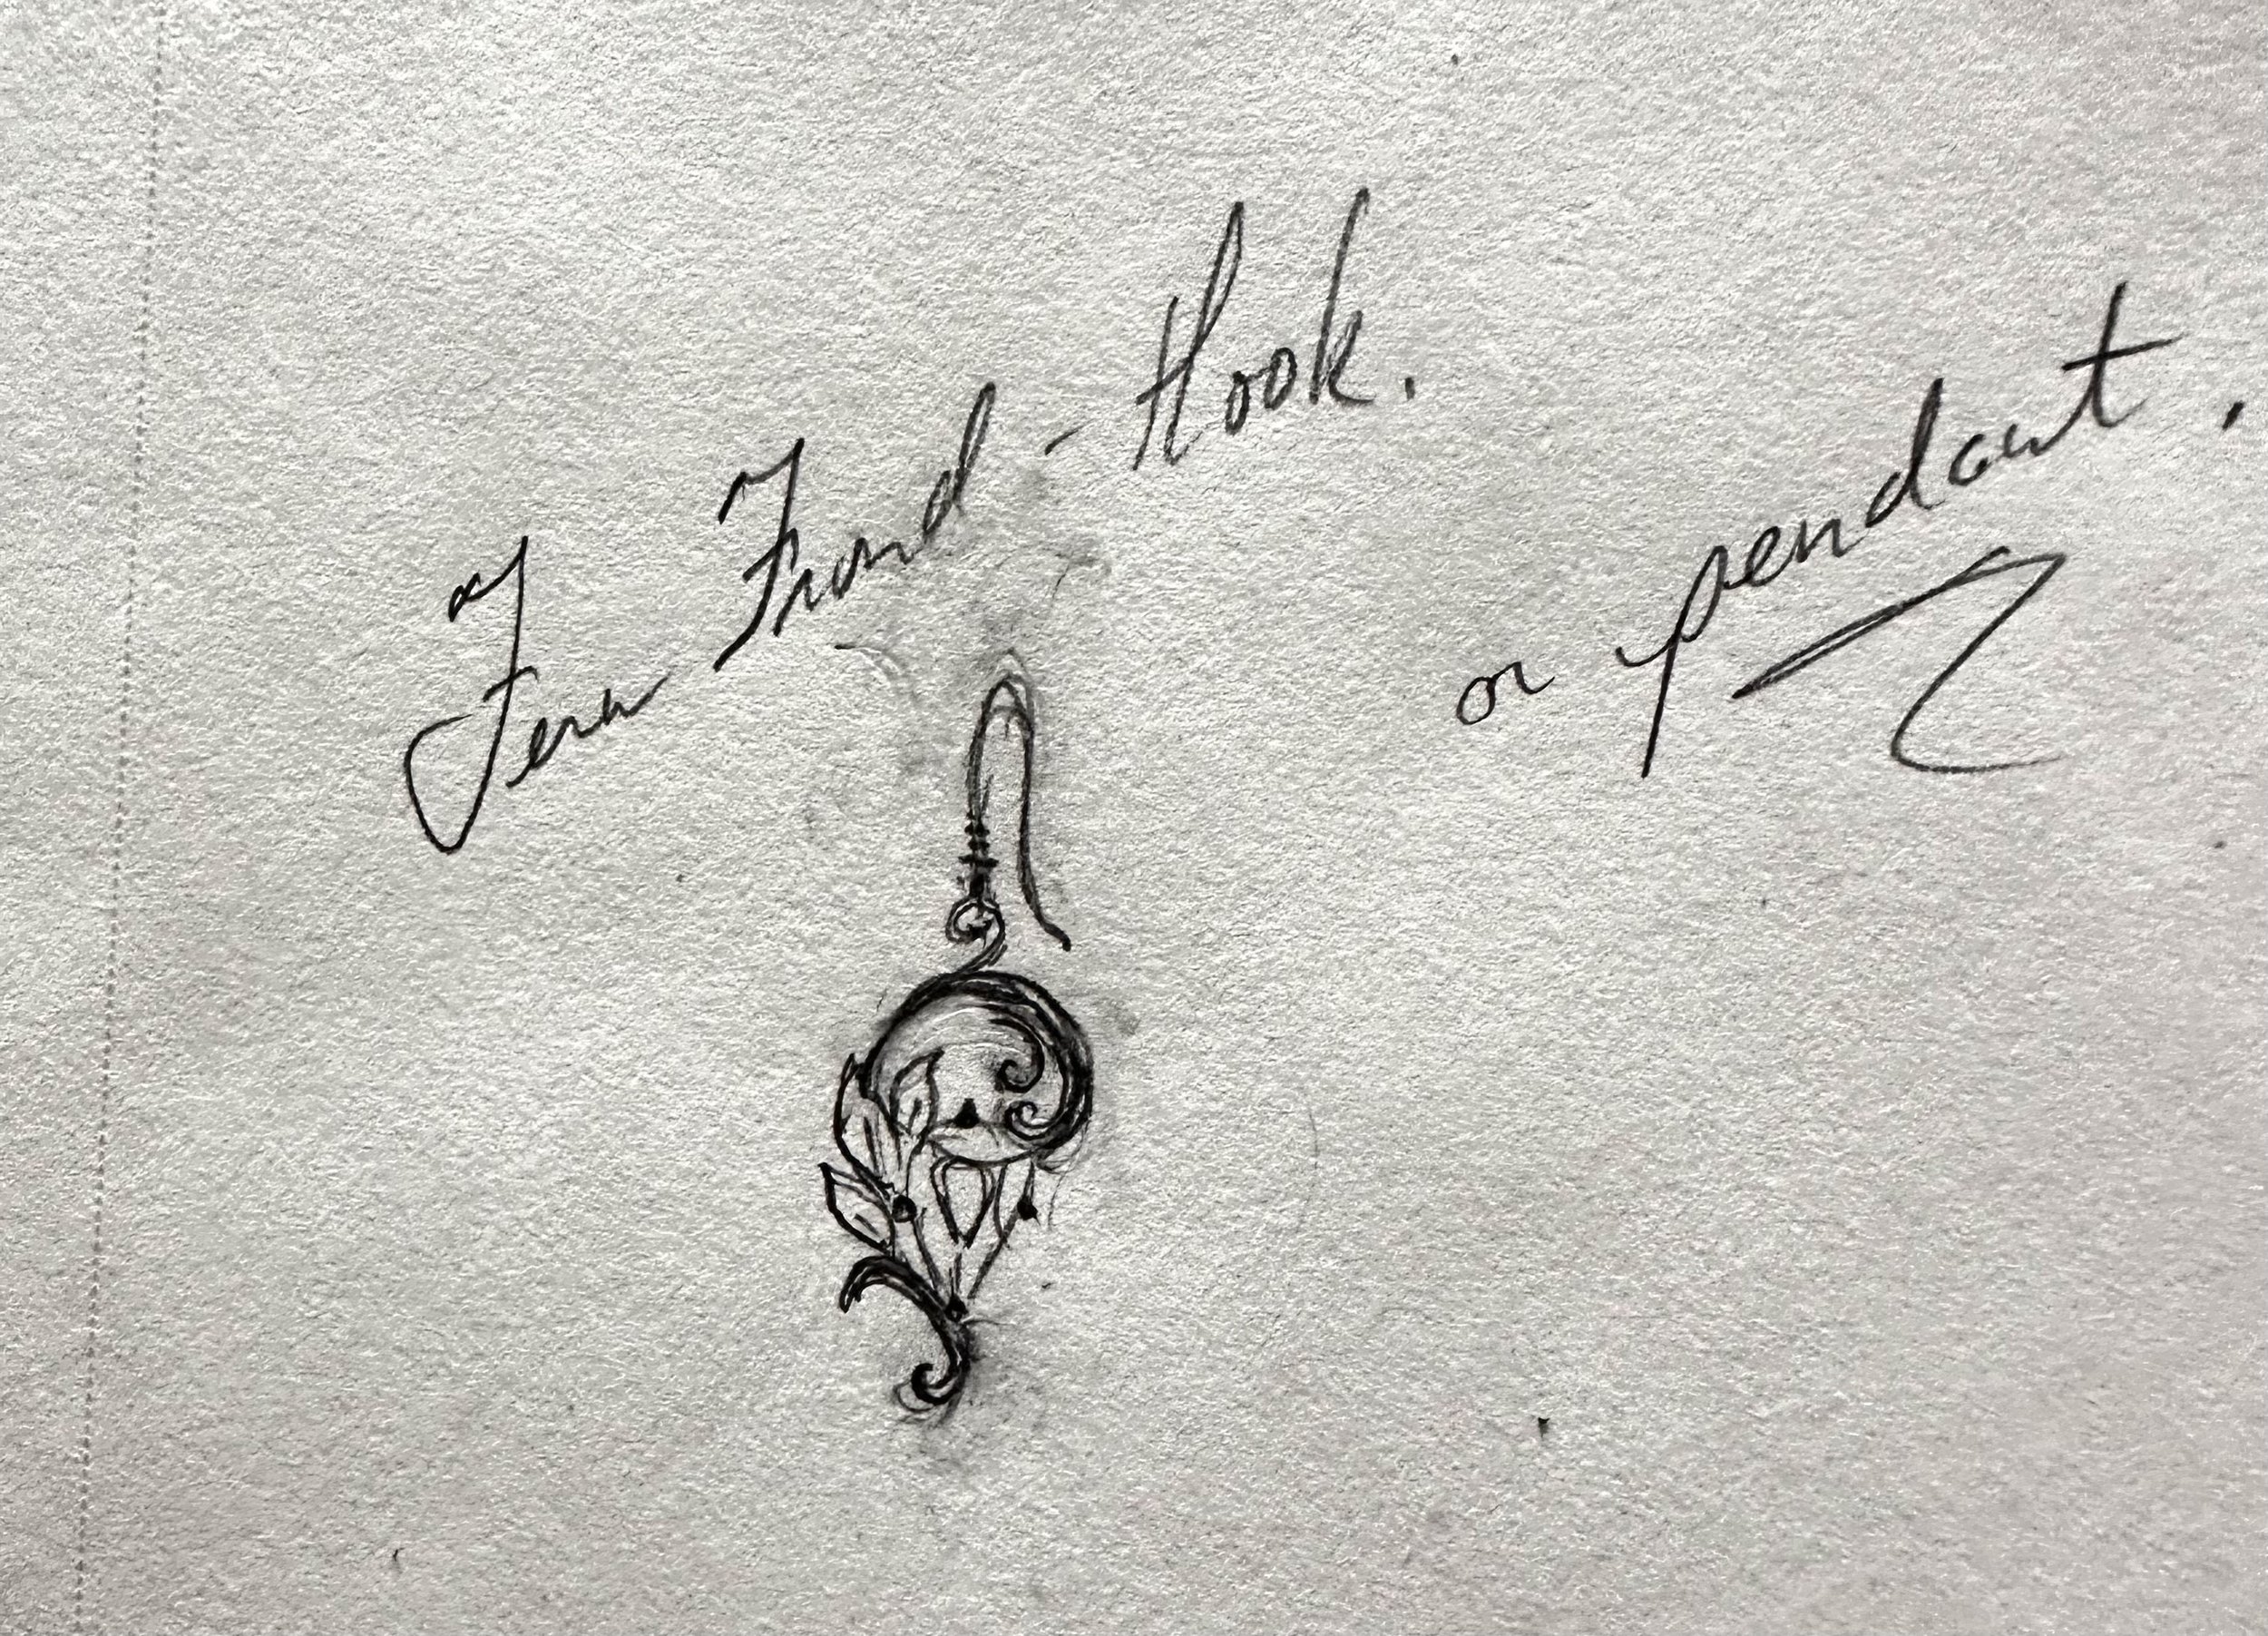 Fern Frond - Hook.
or pendant.